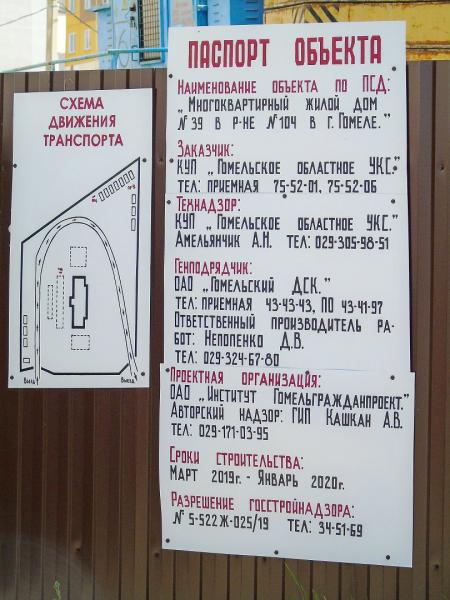 СХЕМА
ДВИЖЕНИЯ
ТРАНСПОРТА
Въезд
Выезд
ПАСПОРТ ОБЪЕКТА
Наименование объекта по ПСД:
„Многоквартирный жилой дом
№39 в р-не №104 в г. Гомеле."
Заказчик:
КУП „Гомельское областное УКС."
тел: приемная 75-52-01, 75-52-06
Технадзор:
КУП „Гомельское областное УКС."
Амельянчик А.Н. тел: 029-305-98-51
Генподрядчик:
ОАО „Гомельский ДСК."
тел: приемная 43-43-43, ПО 43-41-97
Ответственный производитель ра-
бот: Непопенко Д.В.
тел: 029-324-67-80
Проектная организация:
ОАО „Институт Гомельгражданпроект."
Авторский надзор: ГИП Кашкан А.В.
тел: 029-171-03-95
Сроки строительства:
Март 2019г. - Январь 2020г.
Разрешение Госстройнадзора:
№ 5-522Ж-025/19 тел: 34-51-69